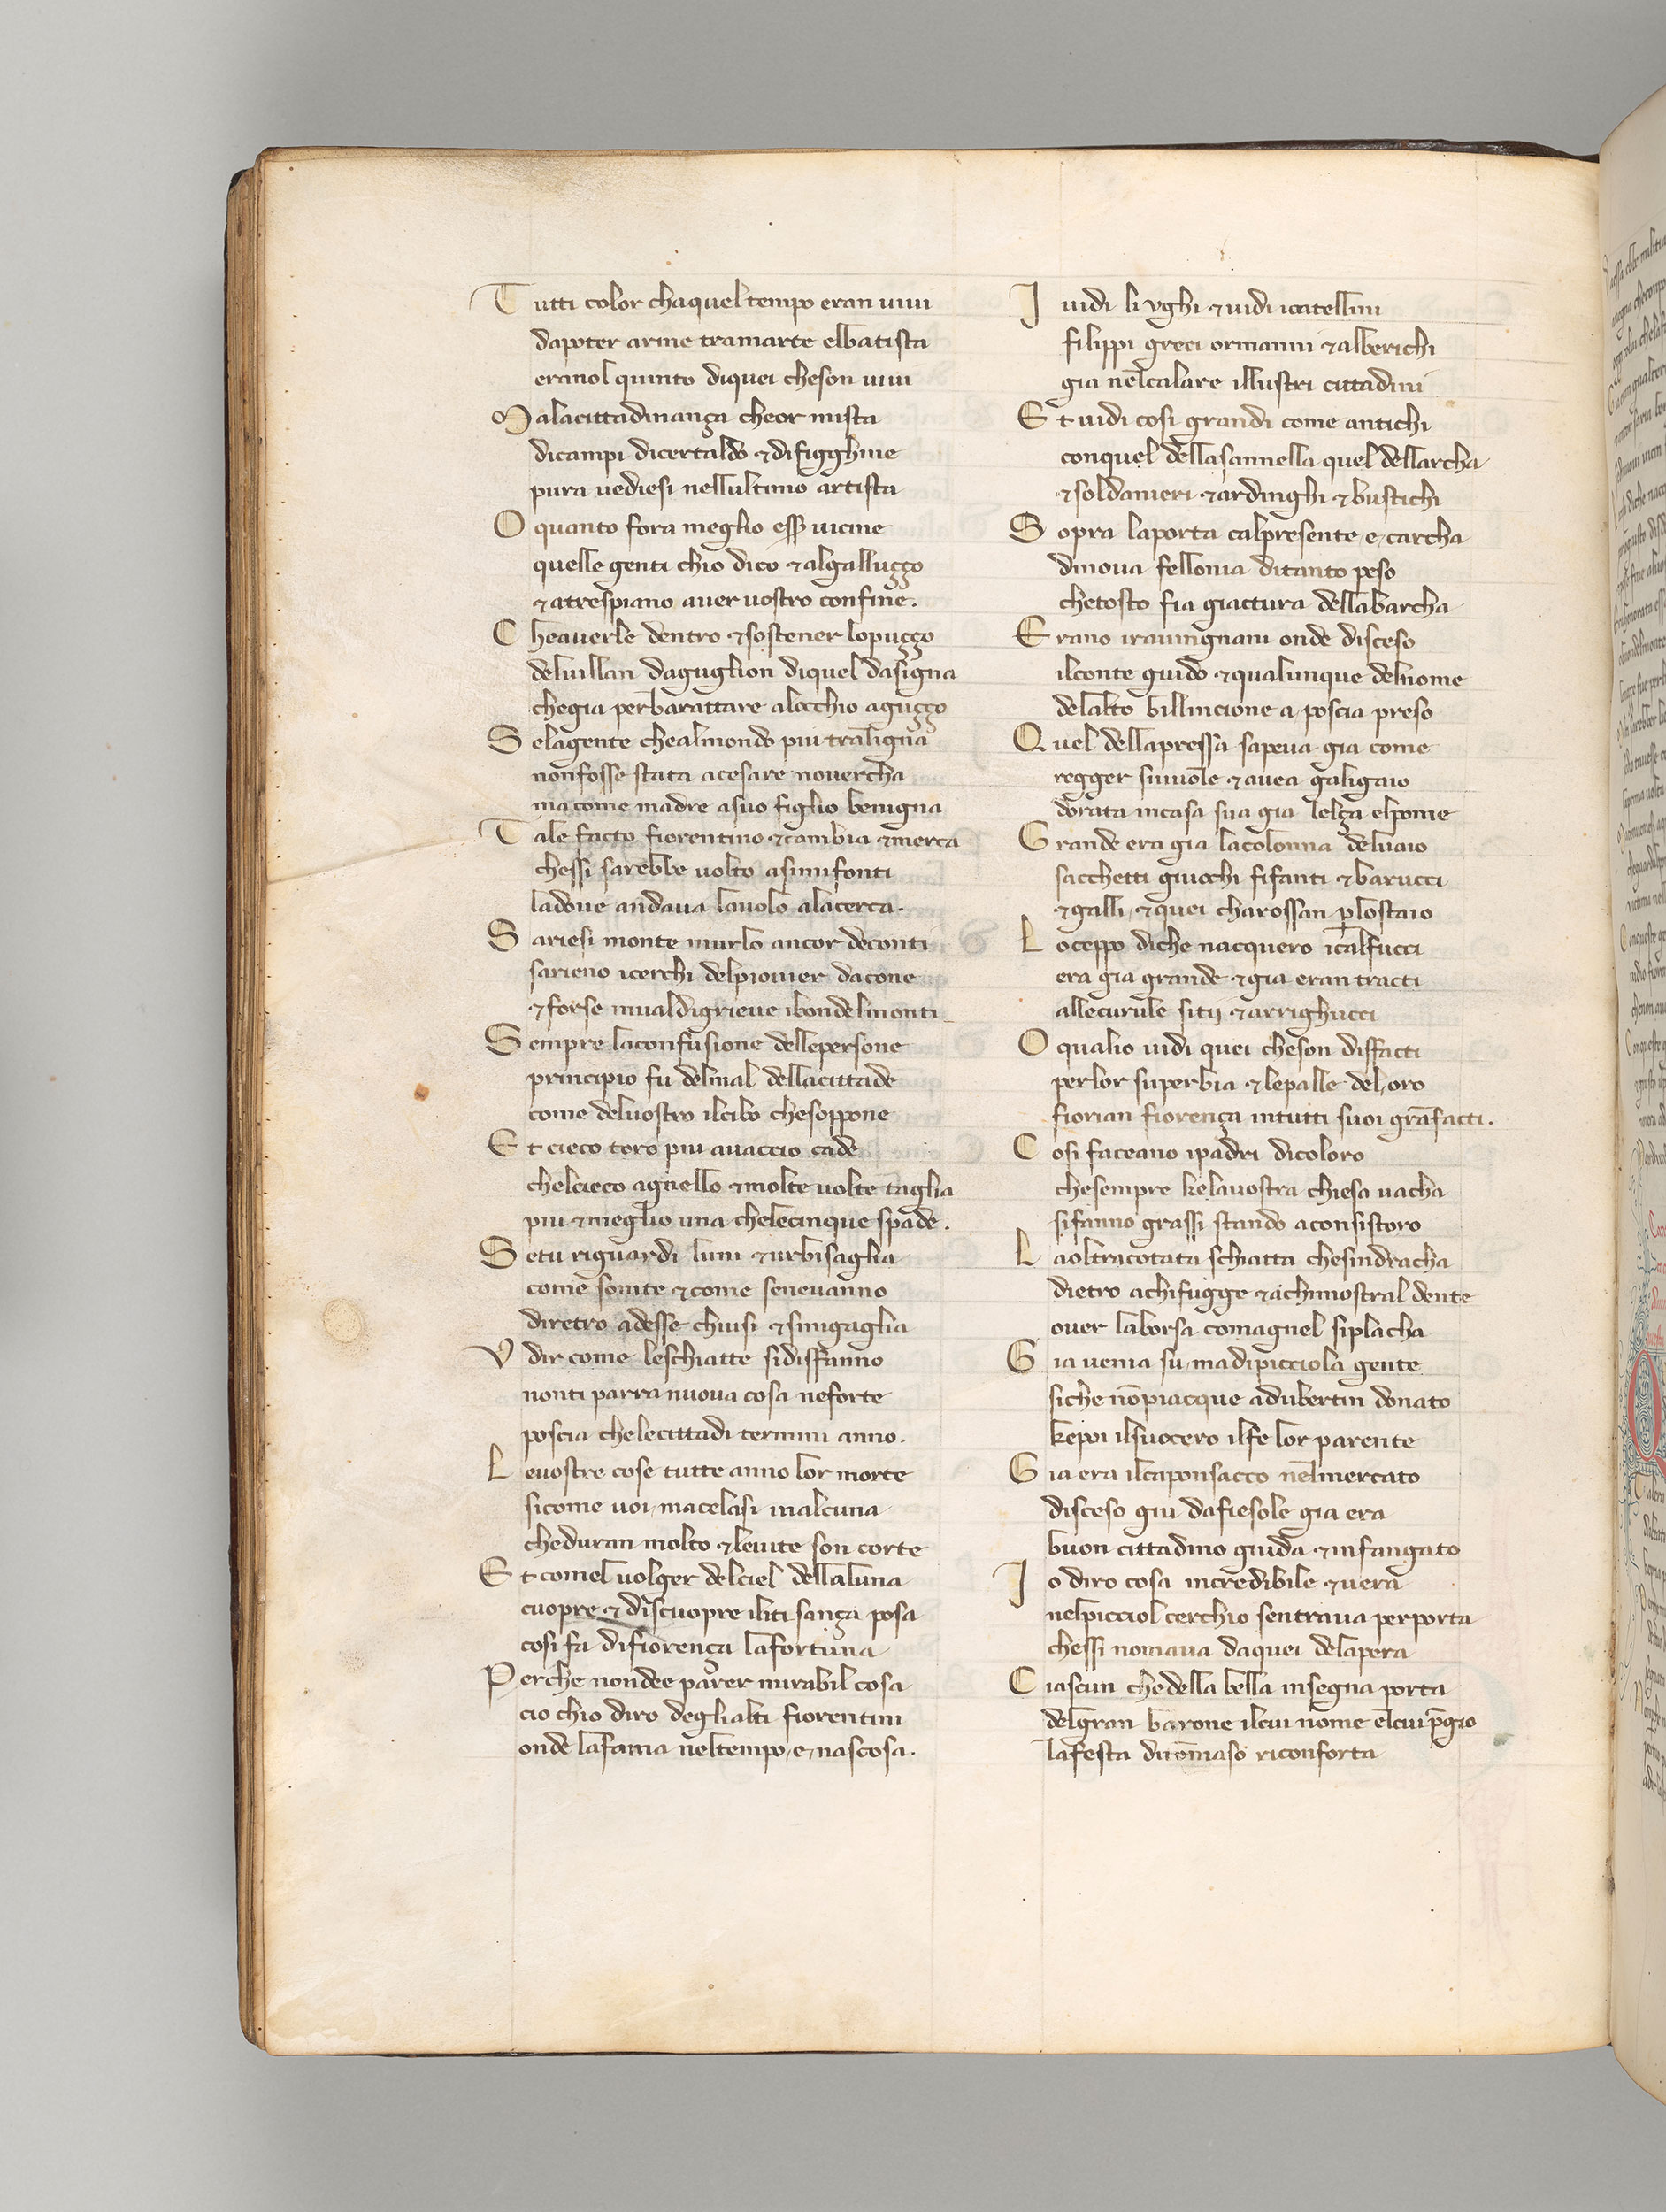 Tutti color chaquel tempo eran uiui
dapoter arme tramarte elbatista
eranol quinto diquei cheson uiui
Malacittadinança cheor mista
dicampi dicertaldo ⁊ difigghine
pura uediesi nellultimo artista
O quanto fora meglio esser uicine
quelle genti chio dico ⁊ algalluçço
⁊ atrespiano auer uostro confine.
Cheauerle dentro ⁊ sostener lopuçço
deluillan daguglion diquel dasigna
chegia perbarattare alocchio aguçço
Selagente chealmondo piu traligna
nonfosse stata acesare nouercha
ma come madre asuo figlio benigna
Tale facto fiorentino ⁊ cambia ⁊ merca
chessi sarebbe uolto asimifonti
ladoue andaua lauolo alacerca.
Sariesi monte murlo ancor deconti
sarieno icerchi delpiouier dacone
⁊ forse inualdigrieue ibondelmonti
Sempre laconfusione dellepersone
principio fu delmal dellacittade
come deluostro ilcibo chesoppone
Et cieco toro piu auaccio cade
chelcieco agnello ⁊ molte uolte taglia
piu ⁊ meglio una chelecinque spade.
Setu riguardi luni ⁊ urbisaglia
come sonite ⁊ come seneuanno
diretro adesse chiusi ⁊ sinigaglia
Vdir come leschiatte sidisfanno
nonti parra nuoua cosa neforte
poscia chelecittadi termini anno.
Leuostre cose tutte anno lor morte
sicome uoi, macelasi inalcuna
cheduran molto ⁊ leuite son corte
Et comel uolger delciel dellaluna
cuopre ⁊ discuopre iliti sança posa
cosi fa difiorença lafortuna
Perche nondee parer mirabil cosa
cio chio diro deglialti fiorentini
onde lafama neltempo, e, nascosa.
I uidi li vghi ⁊ uidi icatellini
filippi greci ormanni ⁊ alberichi
gia nelcalare illustri cittadini
Et uidi cosi grandi come antichi
conquel dellasannella quel dellarcha
⁊ soldanieri ⁊ ardinghi ⁊ bustichi
Sopra laporta calpresente, e, carcha
dinoua fellonia ditanto peso
chetosto fia giactura dellabarcha
Erano irauignani onde disceso
ilconte guido ⁊ qualunque delnome
delalto billincione a, poscia preso
Quel dellapressa sapeua gia come
regger siuuole ⁊ auea galigaio
dorata incasa sua gia lelça elpome
Grande era gia lacolonna deluaio
sacchetti giuochi fifanti ⁊ barucci
⁊ galli, ⁊ quei charossan p̲lostaio
Loceppo diche nacquero icalfucci
era gia grande ⁊ gia eran tracti
allecurule sitij ⁊ arrighucci
O qualio uidi quei cheson disfacti
perlor superbia ⁊ lepalle del, oro
fiorian fiorença intutti suoi gra̅facti.
Cosi faceano ipadri dicoloro
chesempre kelauostra chiesa uacha
sifanno grassi stando aconsistoro
Laoltracotata schiatta chesindracha
dietro achifugge ⁊ achimostral dente
ouer laborsa comagnel siplacha
Gia uenia su, madipicciola gente
siche no̅piacque adubertin donato
kepoi ilsuocero ilfe lor parente
Gia era ilcaponsacco nelmercato
disceso giu dafiesole gia era
buon cittadino giuda ⁊ infangato
Io diro cosa incredibile ⁊ uera
nelpicciol cerchio sentraua perporta
chessi nomaua daquei delapera
Ciascun chedella bella insegna porta
delgran barone ilcui nome elcui p̅gio
lafesta dito̅maso riconforta